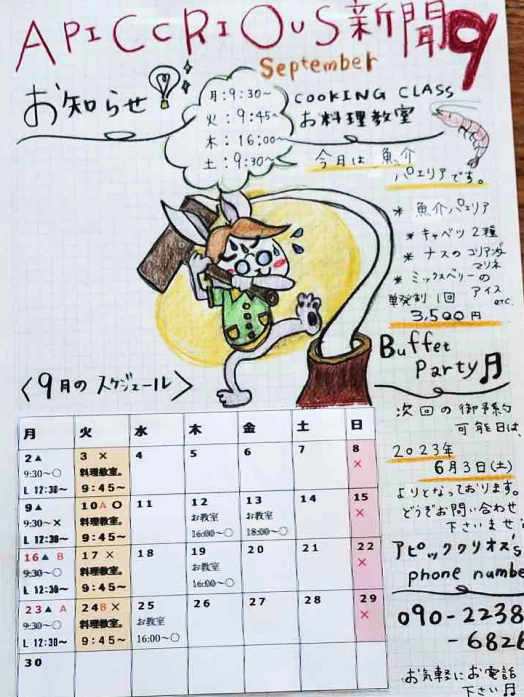 APICCRIOUS新聞9
September
お知らせ
月:9:30~
火:9:45~
木:16:00~
土:9:30~
COOKING CLASS
お料理教室
今月は 魚介
パエリアです。
* 魚介パエリア
* キャベツ2種
* ナスのコリアンダー
マリネ
* ミックスベリーの
アイス
etc.
単発制 1回
3,500円
Buffet
Party♬
次回の御予約
可能日は、
2023年
6月3日(土)
よりとなっております。
どうぞお問い合わせ
下さいませ
アピックックリオス's
phone numbe
090-2238
-6826
お気軽にお電話
下さい♬
<9月のスケジュール>
月 火 水 木 金 土 日
2▲ 3 × 4 5 6 7 8
9:30~○ 料理教室。 ×
L 12:30~ 9:45~
9▲ 10 A O 11 12 13 14 15
9:30~× 料理教室。 お教室 お教室 ×
L 12:30~ 9:45~ 16:00~○ 18:00~○
16▲ B 17 × 18 19 20 21 22
9:30~○ 料理教室。 お教室 ×
L 12:30~ 9:45~ 16:00~○
23▲ A 24 B × 25 26 27 28 29
9:30~○ 料理教室。 お教室 ×
L 12:30~ 9:45~ 16:00~○
30